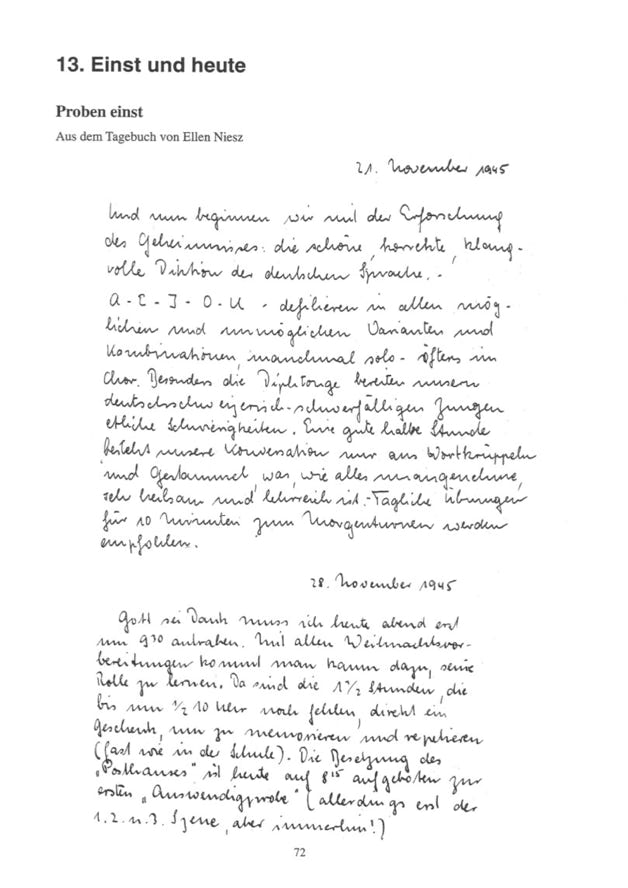 13. Einst und heute
Proben einst
Aus dem Tagebuch von Ellen Niesz
21. November 1945
Und nun beginnen wir mit der Erforschung
des Geheimnisses: die schöne, korrekte, klang-
volle Diktion der deutschen Sprache. -
A - E - I - O - U - defilieren in allen mög-
lichen und unmöglichen Varianten und
Kombinationen, manchmal solo - öfters im
Chor. Besonders die Diphtonge bereiten unsern
deutschschweizerisch-schwerfälligen Zungen
etliche Schwierigkeiten. Eine gute halbe Stunde
besteht unsere Konversation nur aus Wortkrüppeln
und Gestammel, was, wie alles unangenehme,
sehr heilsam und lehrreich ist. - Tägliche Übungen
für 10 Minuten zum Morgenturnen werden
empfohlen.
28. November 1945
Gott sei Dank muss ich heute abend erst
um 9³⁰ antraben. Mit allen Weihnachtsvor-
bereitungen kommt man kaum dazu, seine
Rolle zu lernen. Da sind die 1½ Stunden, die
bis um ½ 10 Uhr noch fehlen, direkt ein
Geschenk, um zu memorieren und repetieren
(fast wie in der Schule). Die Besetzung des
„Posthauses" ist heute auf 8¹⁵ aufgeboten zur
ersten „Auswendigprobe" (allerdings erst der
1. 2. u. 3. Szene, aber immerhin!)
72